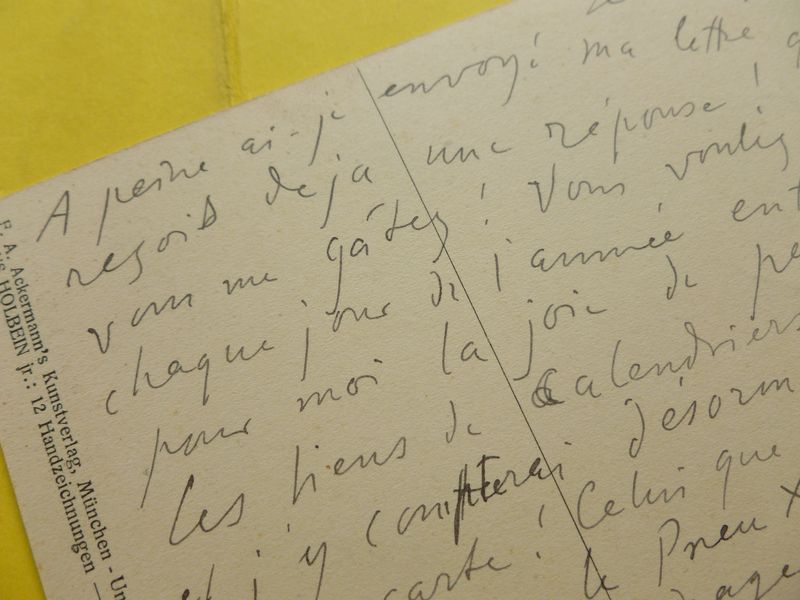 A peine ai-je envoyé ma lettre
reçois déjà une réponse!
vous me gâtez! Vous voulez
chaque jour de l'année
pour moi la joie de
les liens de calendriers
j'y compterai
carte! Celui que
le Pneu X
F. A. Ackermann's Kunstverlag, München - Un
HOLBEIN jr.: 12 Handzeichnungen —